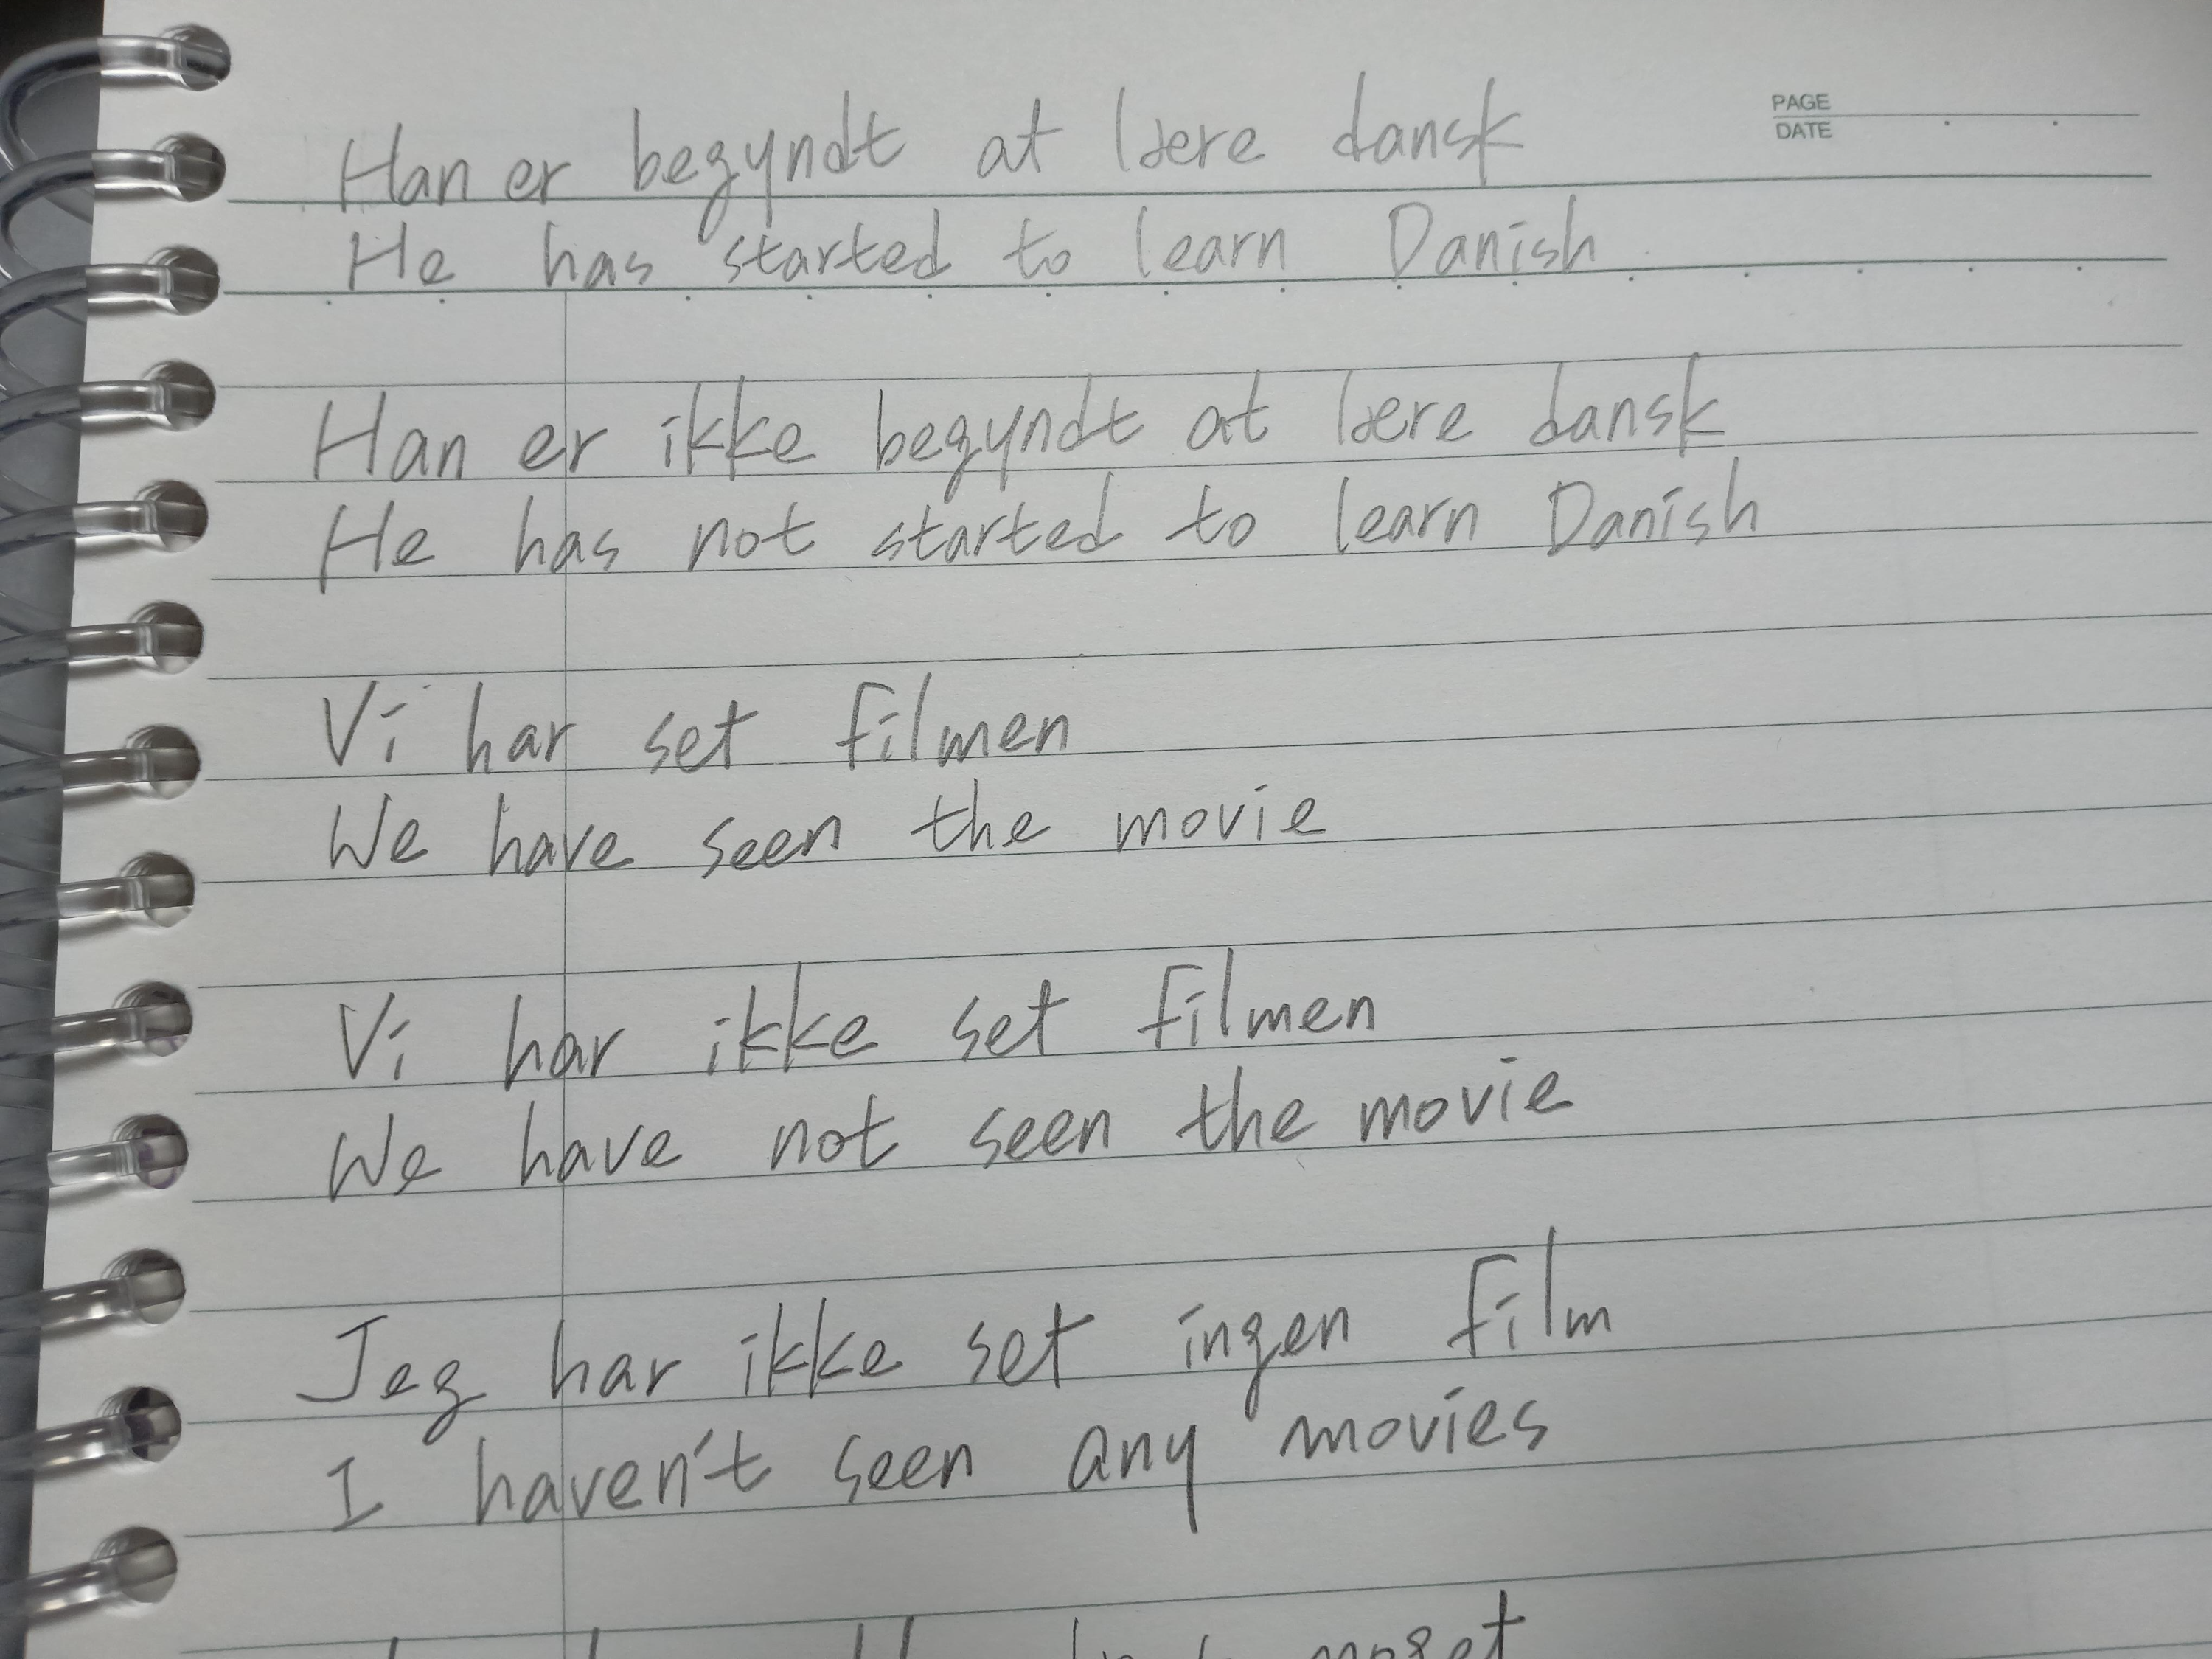 PAGE
DATE
Han er begyndt at lære dansk
He has started to learn Danish
Han er ikke begyndt at lære dansk
He has not started to learn Danish
Vi har set filmen
We have seen the movie
Vi har ikke set filmen
We have not seen the movie
Jeg har ikke set ingen film
I haven't seen any movies
meget